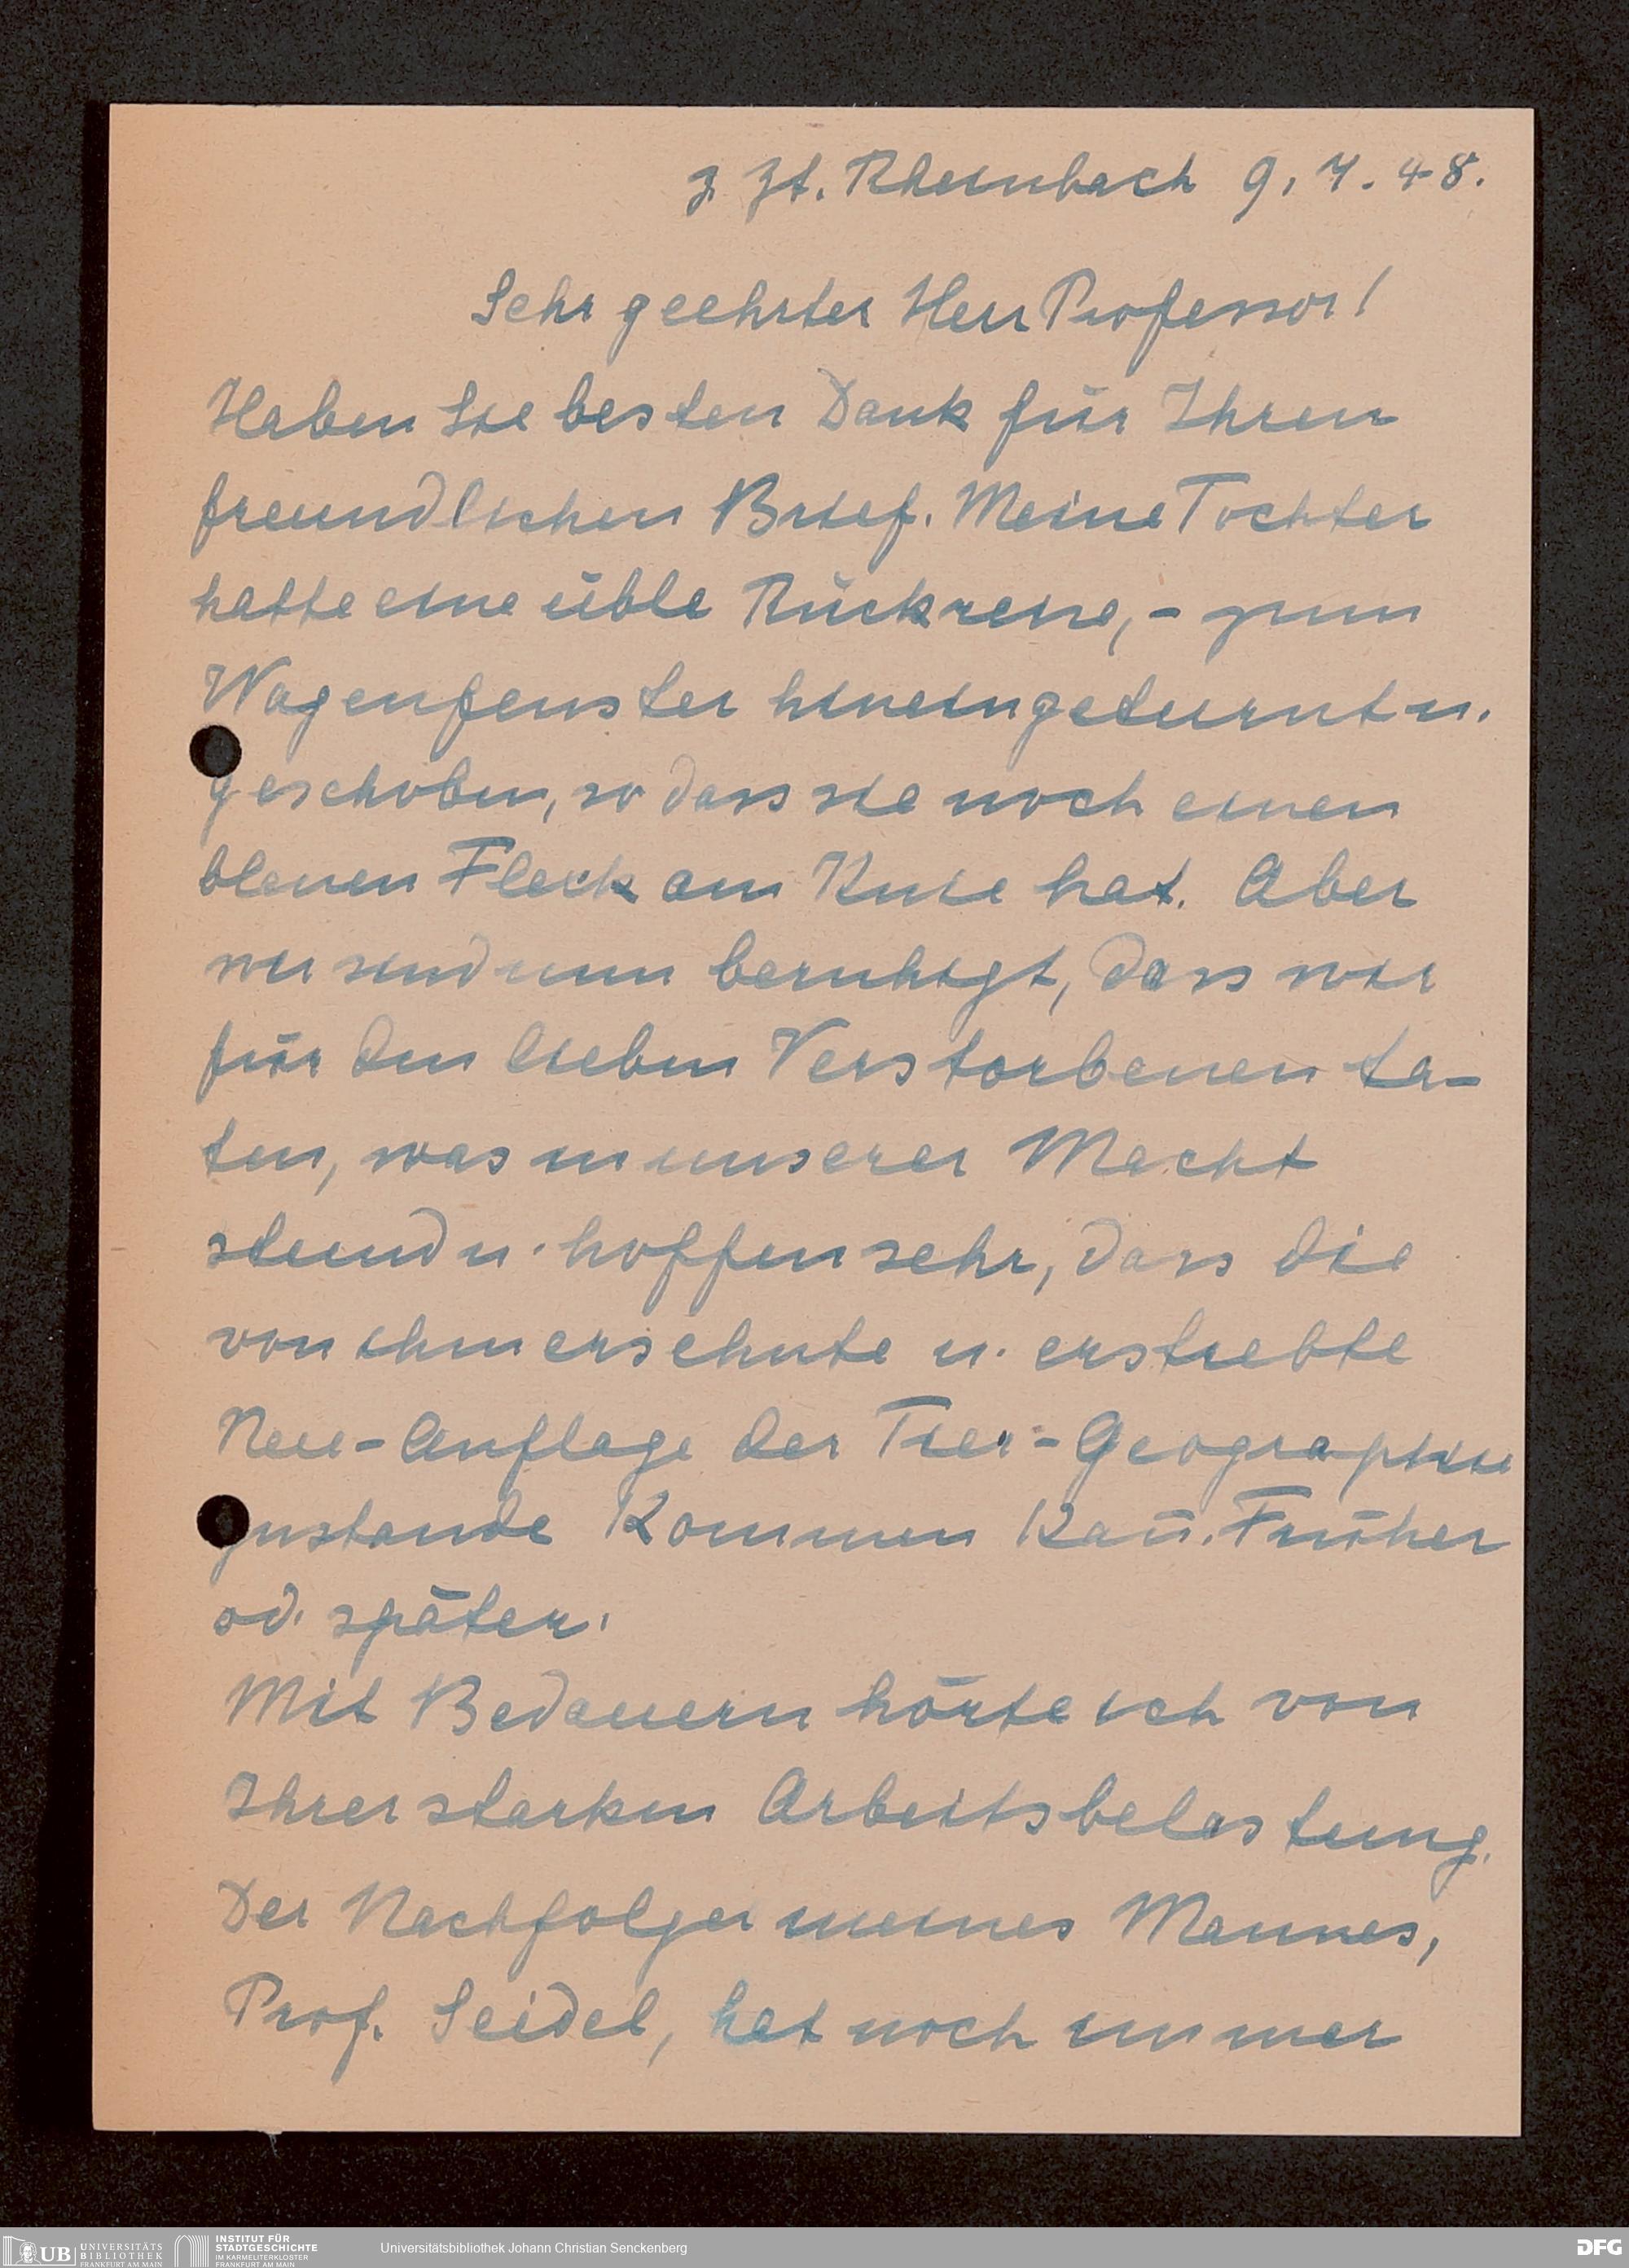 z. Zt. Rheinbach 9. 7. 48.
Sehr geehrter Herr Professor!
Haben Sie besten Dank für Ihren
freundlichen Brief. Meine Tochter
hatte eine üble Rückreise, - zum
Wagenfenster hineingeturnt u.
geschoben, so dass sie noch einen
blauen Fleck am Knie hat. Aber
wir sind nun beruhigt, dass wir
für den lieben Verstorbenen ta-
ten, was in unserer Macht
stund u. hoffen sehr, dass die
von ihm ersehnte u. erstrebte
Neu-Auflage der Tier-Geographie
zustande kommen kañ. Früher
od. später.
Mit Bedauern hörte ich von
Ihrer starken Arbeitsbelastung.
Der Nachfolger meines Mannes,
Prof. Seidel, hat noch immer
UB UNIVERSITÄTS
BIBLIOTHEK
FRANKFURT AM MAIN
INSTITUT FÜR
STADTGESCHICHTE
IM KARMELITERKLOSTER
FRANKFURT AM MAIN
Universitätsbibliothek Johann Christian Senckenberg
DFG